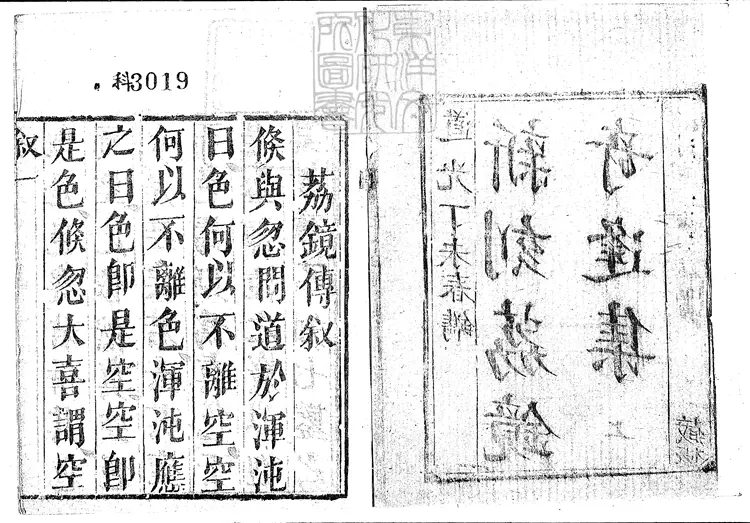 道光丁未春鐫
新刻荔鏡
奇逢集
藏板
東洋文
化研究
所圖書
科3019
荔鏡傳叙
倏與忽問道於渾沌
曰色何以不離空空
何以不離色渾沌應
之曰色卽是空空卽
是色倏忽大喜謂空
叙一